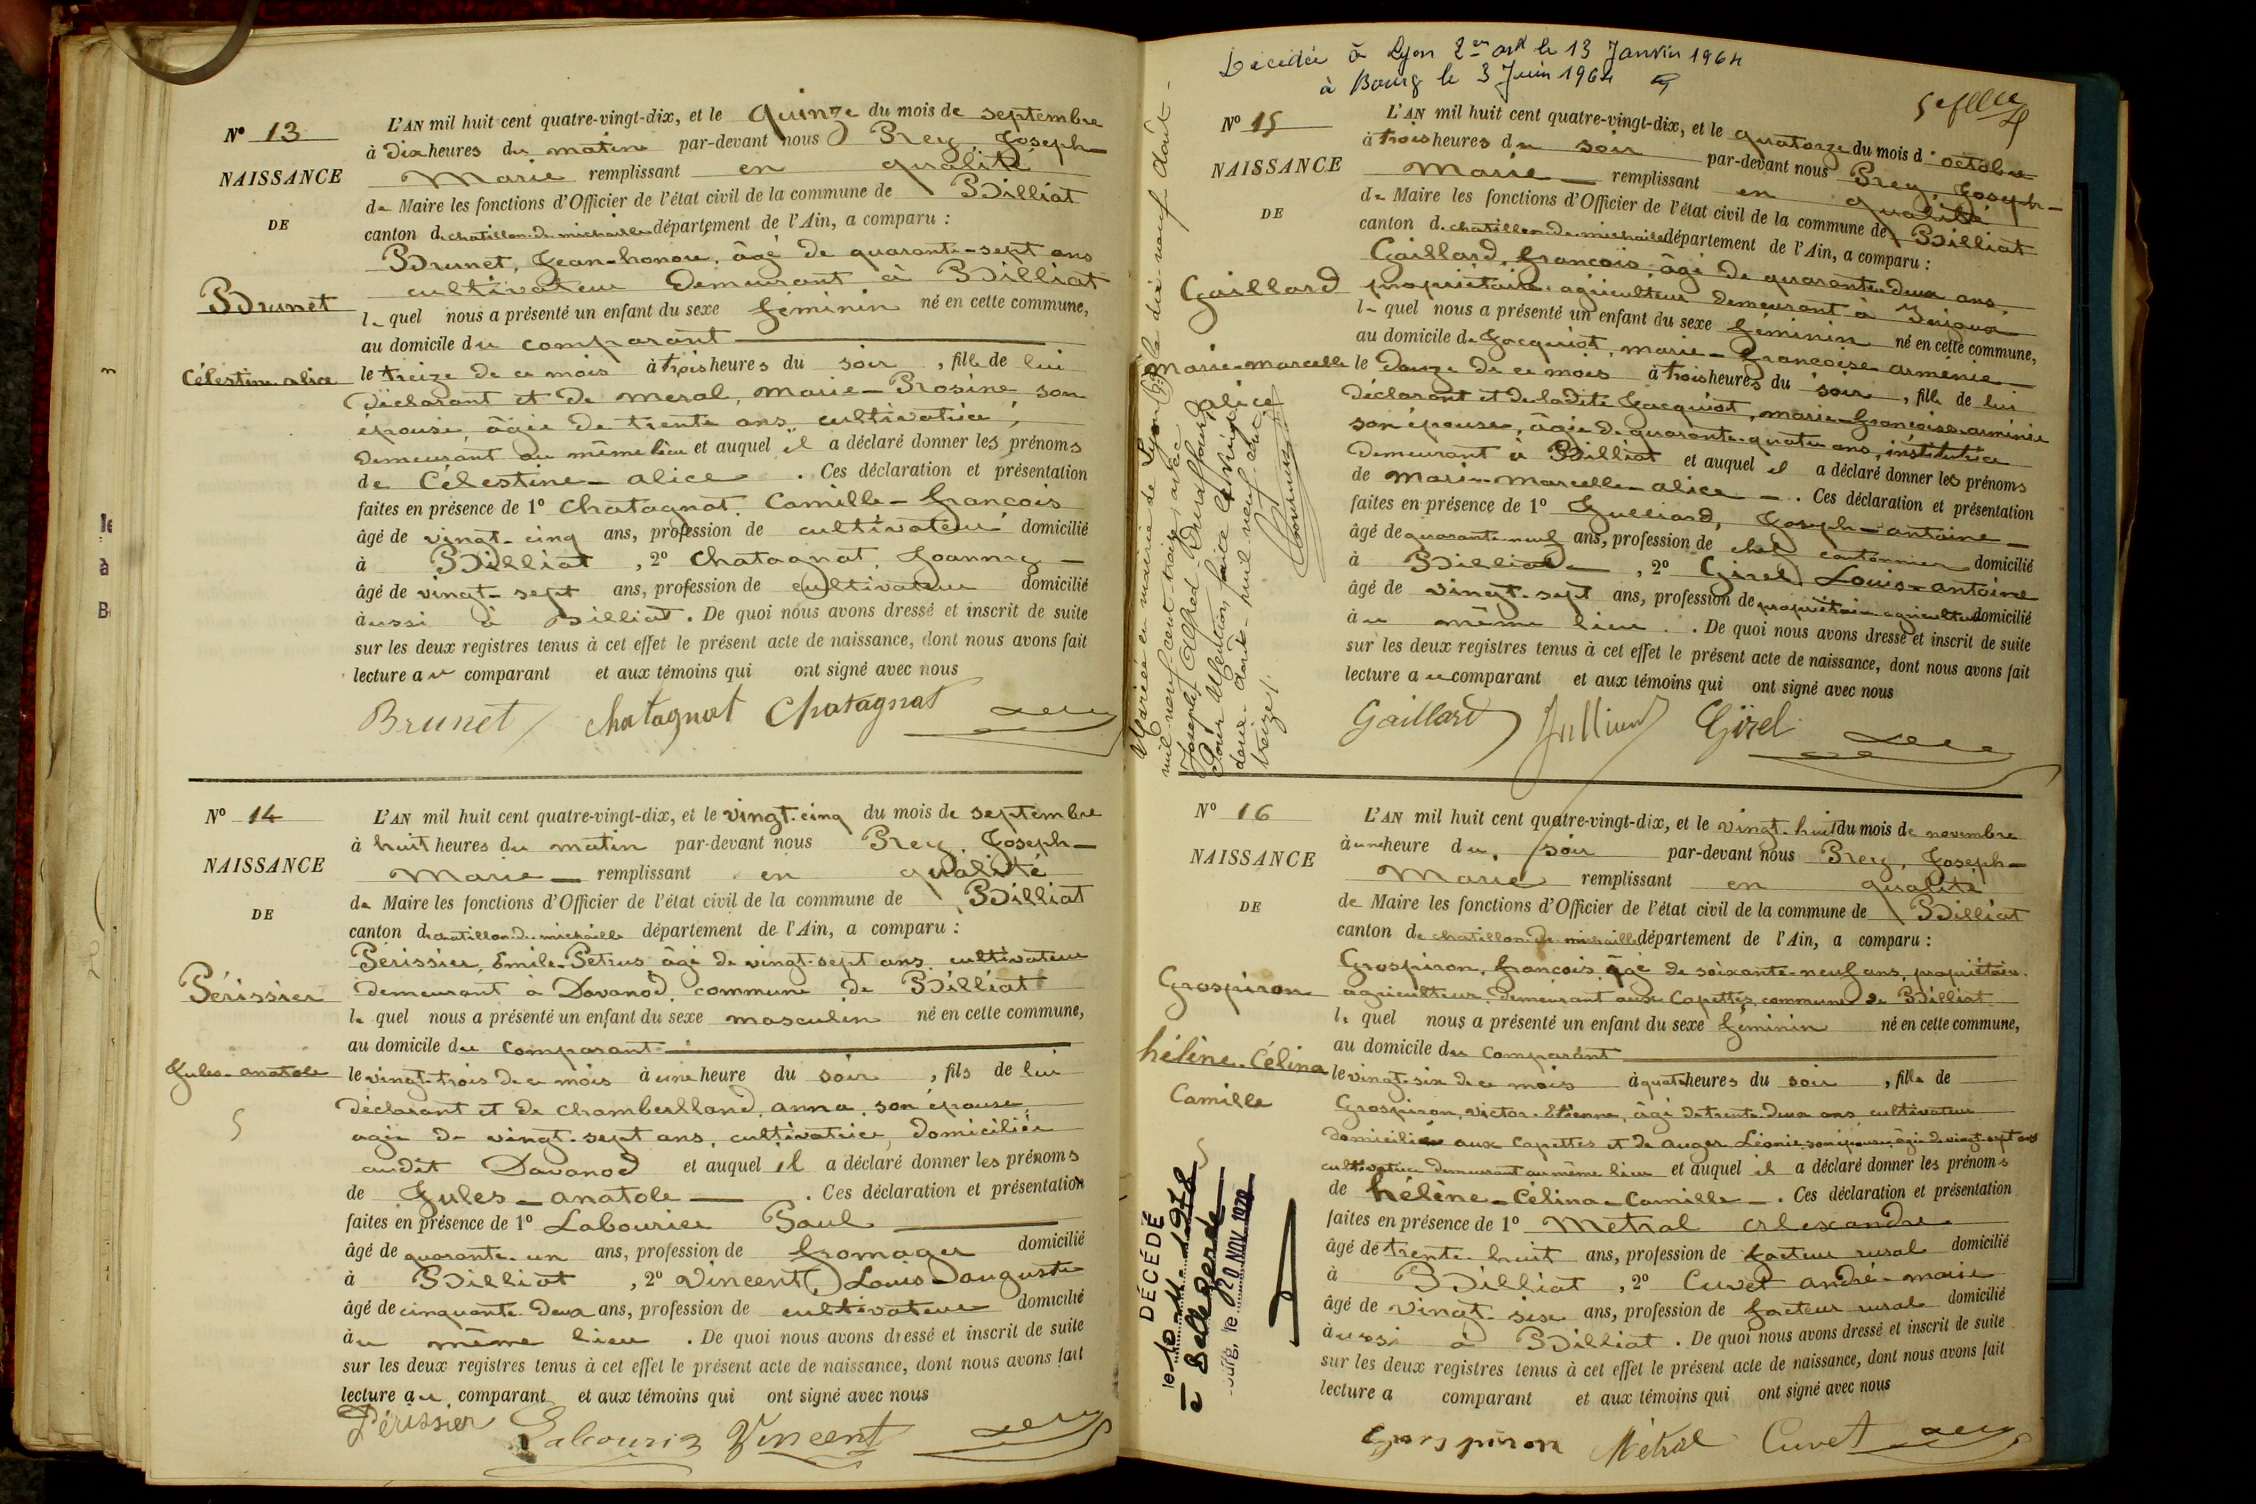 N° 13
NAISSANCE
DE
Brunet
Célestine alice
L'AN mil huit cent quatre-vingt-dix, et le quinze du mois de septembre
à dix heures du matin par-devant nous Prey, Joseph-
Marie remplissant en qualité
de Maire les fonctions d'Officier de l'état civil de la commune de Billiat
canton de chatillon de michaille département de l'Ain, a comparu :
Brunet, Jean-honore, âgé de quarante-sept ans
cultivateur demeurant à Billiat
lequel nous a présenté un enfant du sexe féminin né en cette commune,
au domicile du comparant
le treize de ce mois à trois heures du soir, fille de lui
déclarant et de Meral, Marie-Rosine son
épouse, âgée de trente ans, cultivatrice,
demeurant au même lieu et auquel il a déclaré donner les prénoms
de Célestine-alice. Ces déclaration et présentation
faites en présence de 1° Chatagnat, Camille-françois
âgé de vingt-cinq ans, profession de cultivateur domicilié
à Billiat, 2° Chatagnat, Joanny
âgé de vingt-sept ans, profession de cultivateur domicilié
aussi à Billiat. De quoi nous avons dressé et inscrit de suite
sur les deux registres tenus à cet effet le présent acte de naissance, dont nous avons fait
lecture au comparant et aux témoins qui ont signé avec nous
Brunet chatagnat Chatagnat
N° 14
NAISSANCE
DE
Périssier
Jules-anatole
L'AN mil huit cent quatre-vingt-dix, et le vingt-cinq du mois de septembre
à huit heures du matin par-devant nous Prey, Joseph-
Marie remplissant en qualité
de Maire les fonctions d'Officier de l'état civil de la commune de Billiat
canton de chatillon de michaille département de l'Ain, a comparu :
Périssier, Emile-Petrus âgé de vingt-sept ans, cultivateur
demeurant à Davanod, commune de Billiat
lequel nous a présenté un enfant du sexe masculin né en cette commune,
au domicile du comparant
le vingt-trois de ce mois à une heure du soir, fils de lui
déclarant et de chamberlland, anna, son épouse,
agée de vingt-sept ans, cultivatrice, domiciliée
audit Davanod et auquel il a déclaré donner les prénoms
de Jules-anatole. Ces déclaration et présentation
faites en présence de 1° Labourier Paul
âgé de quarante-un ans, profession de fromager domicilié
à Billiat, 2° Vincent Louis-auguste
âgé de cinquante-deux ans, profession de cultivateur domicilié
au même lieu. De quoi nous avons dressé et inscrit de suite
sur les deux registres tenus à cet effet le présent acte de naissance, dont nous avons fait
lecture au comparant et aux témoins qui ont signé avec nous
Périssier Labourier Vincent
Décédée à Lyon 2e ardt le 13 Janvier 1964
à Bourg le 3 Juin 1964
N° 15
NAISSANCE
DE
Gaillard
Marie-Marcelle
alice
L'AN mil huit cent quatre-vingt-dix, et le quatorze du mois d'octobre
à trois heures du soir par-devant nous Prey, Joseph-
Marie remplissant en qualité
de Maire les fonctions d'Officier de l'état civil de la commune de Billiat
canton de chatillon de michaille département de l'Ain, a comparu :
Gaillard, françois âgé de quarante-deux ans,
propriétaire agriculteur demeurant à
lequel nous a présenté un enfant du sexe féminin né en cette commune,
au domicile de Jacquiot, marie-françoise arminie
le douze de ce mois à trois heures du soir, fille de lui
déclarant et de ladite Jacquiot, marie-françoise arminie
son épouse, âgée de quarante-quatre ans, institutrice
demeurant à Billiat et auquel il a déclaré donner les prénoms
de Marie-Marcelle-alice. Ces déclaration et présentation
faites en présence de 1° Julliard, Joseph-antoine
âgé de quarante-neuf ans, profession de chef cantonnier domicilié
à Billiat, 2° Girel Louis-antoine
âgé de vingt-sept ans, profession de propriétaire agriculteur domicilié
au même lieu. De quoi nous avons dressé et inscrit de suite
sur les deux registres tenus à cet effet le présent acte de naissance, dont nous avons fait
lecture au comparant et aux témoins qui ont signé avec nous
Gaillard Julliard Girel
Mariée en mairie de Lyon le dix-neuf Août
mil neuf cent treize, avec
Joseph Alfred
Pour Mention faite le vingt
deux Août mil neuf cent
treize.
N° 16
NAISSANCE
DE
Grospiron
hélène-Célina
Camille
L'AN mil huit cent quatre-vingt-dix, et le vingt-huit du mois de novembre
à une heure du soir par-devant nous Prey, Joseph-
Marie remplissant en qualité
de Maire les fonctions d'Officier de l'état civil de la commune de Billiat
canton de chatillon de michaille département de l'Ain, a comparu :
Grospiron, françois âgé de soixante-neuf ans, propriétaire
agriculteur, demeurant aux Capettes, commune de Billiat
lequel nous a présenté un enfant du sexe féminin né en cette commune,
au domicile du comparant
le vingt-six de ce mois à quatre heures du soir, fille de
Grospiron, victor-Etienne, âgé de trente-deux ans cultivateur
domicilié aux Capettes et de auger Léonie son épouse, âgée de vingt-sept ans
cultivatrice demeurant au même lieu et auquel il a déclaré donner les prénoms
de hélène-Célina-Camille. Ces déclaration et présentation
faites en présence de 1° Metral alexandre
âgé de trente-huit ans, profession de facteur rural domicilié
à Billiat, 2° Cuvet andré-marie
âgé de vingt-six ans, profession de facteur rural domicilié
aussi à Billiat. De quoi nous avons dressé et inscrit de suite
sur les deux registres tenus à cet effet le présent acte de naissance, dont nous avons fait
lecture a comparant et aux témoins qui ont signé avec nous
Grospiron Métral Cuvet
DÉCÉDÉ
le 10-11-1978
à Bellegarde
Bourg, le 20 NOV 1978